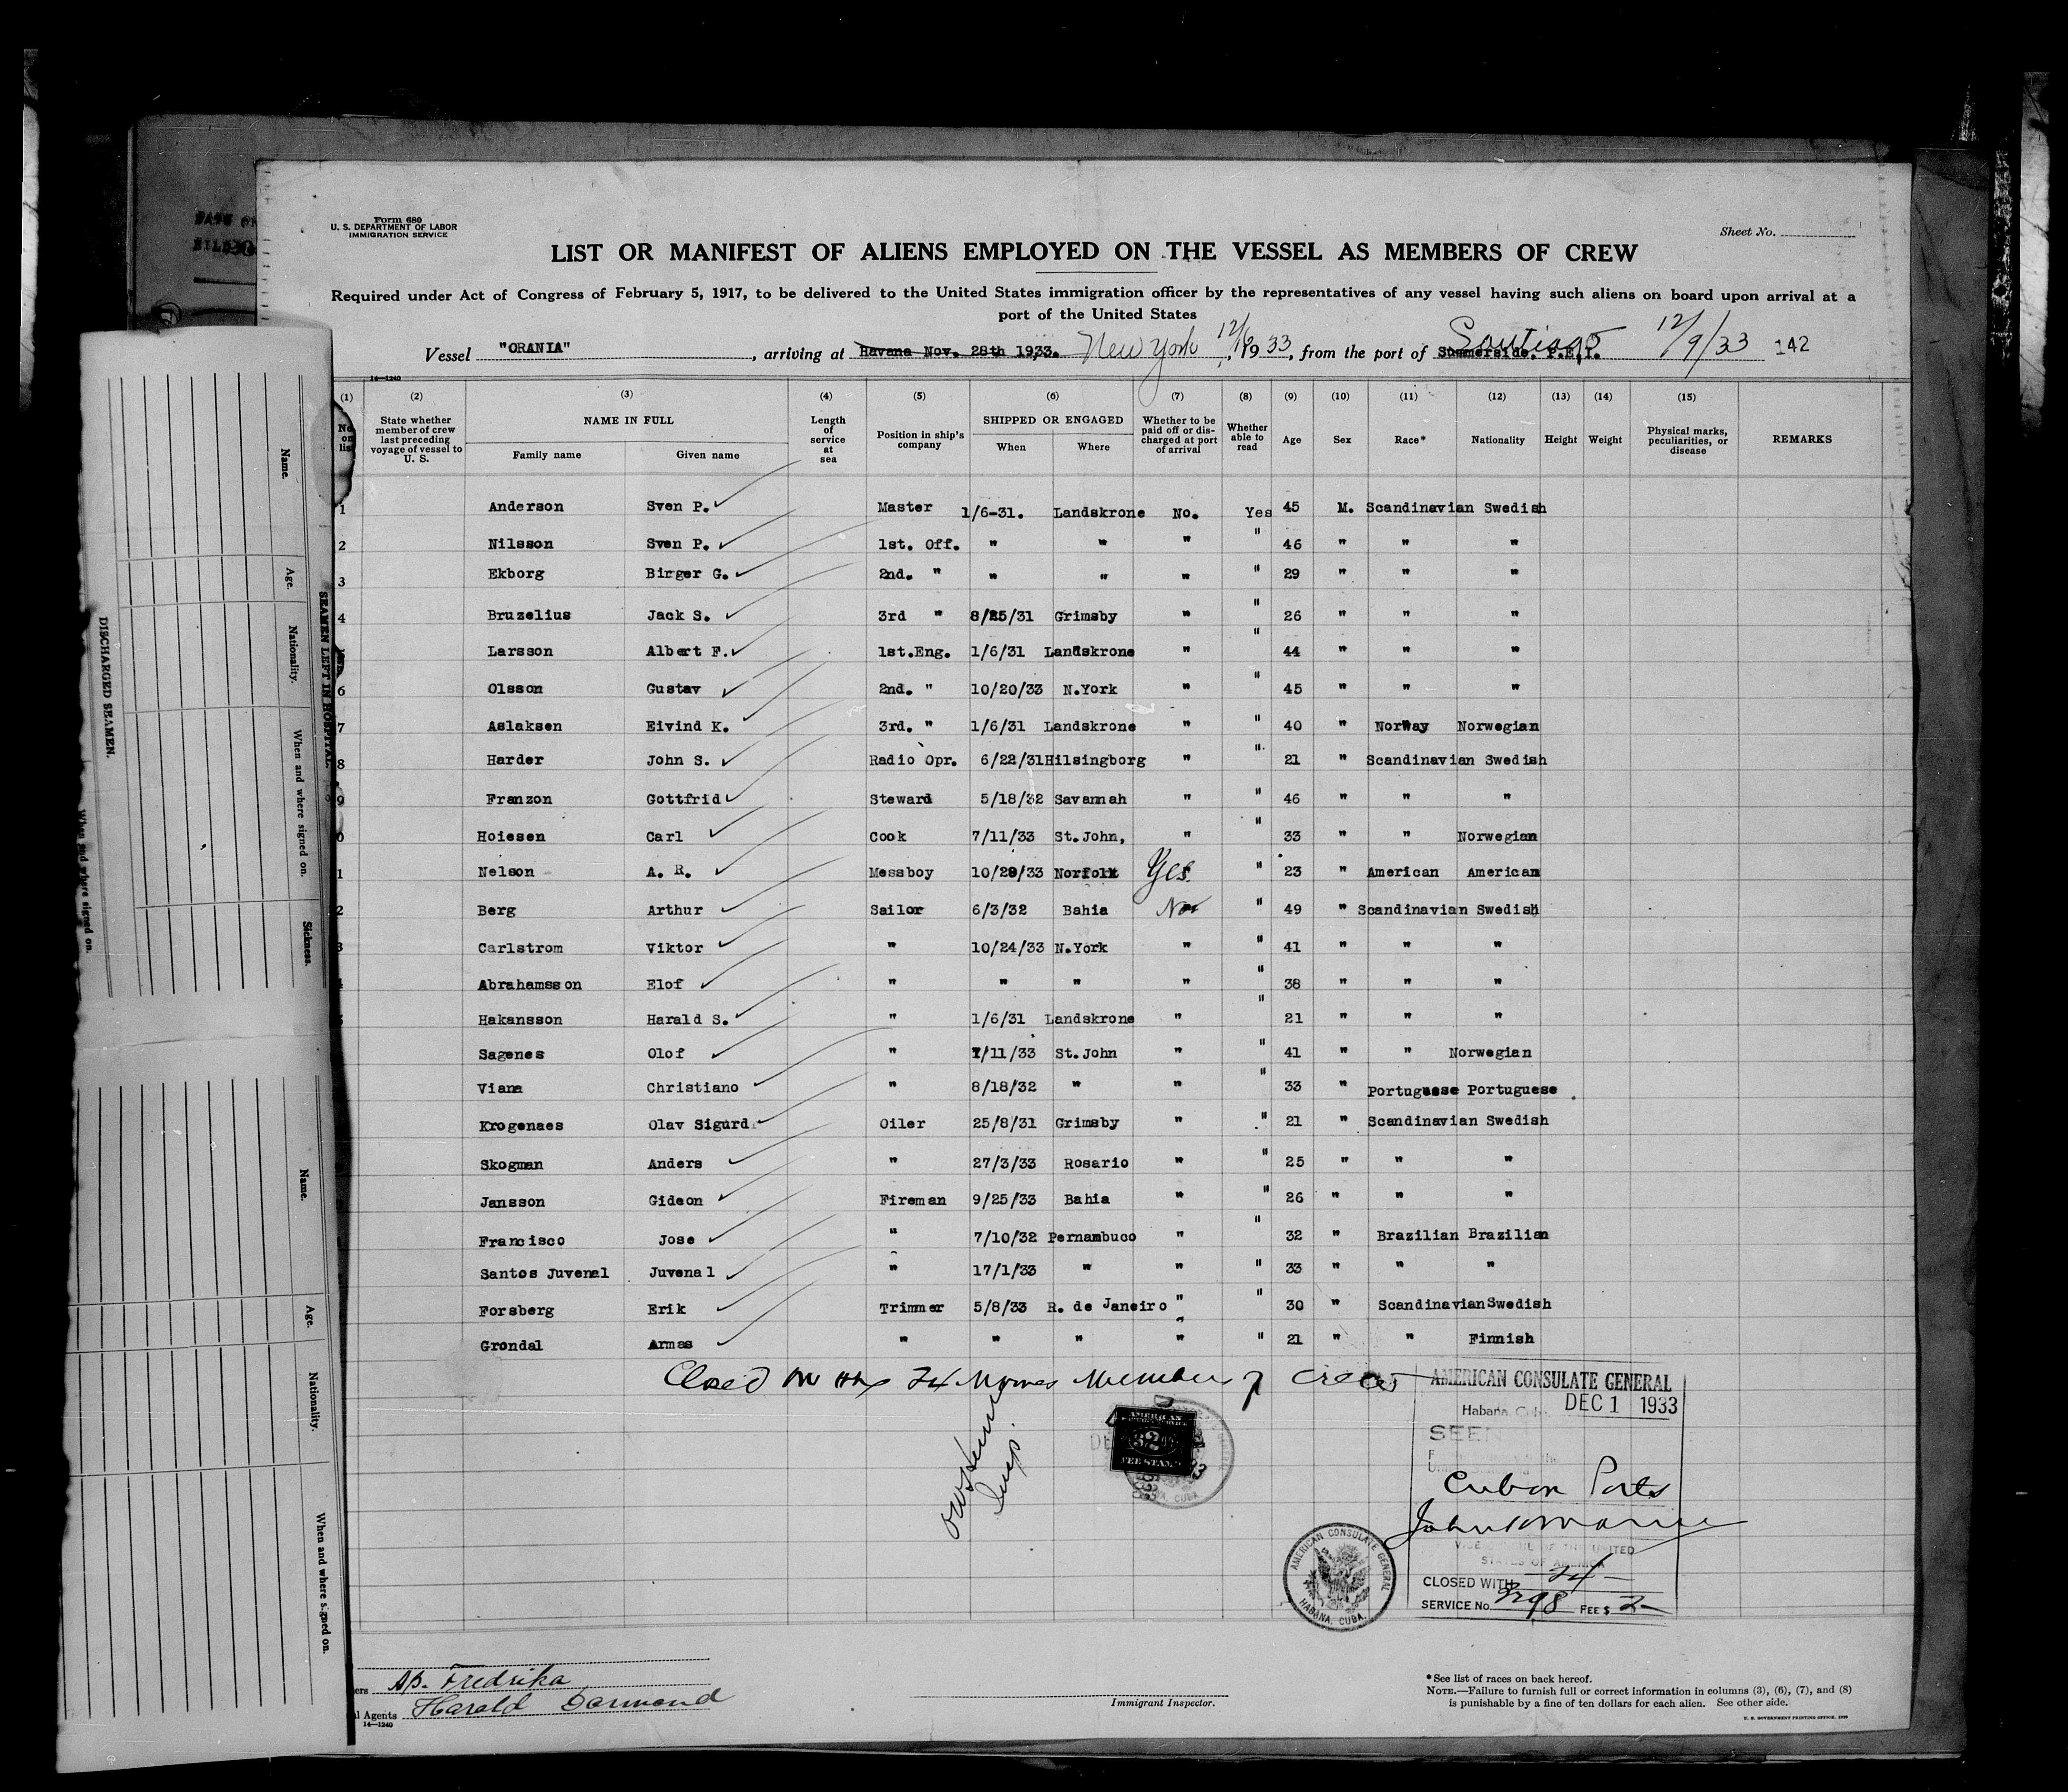 Form 680
U. S. DEPARTMENT OF LABOR
IMMIGRATION SERVICE
Sheet No.
LIST OR MANIFEST OF ALIENS EMPLOYED ON THE VESSEL AS MEMBERS OF CREW
Required under Act of Congress of February 5, 1917, to be delivered to the United States immigration officer by the representatives of any vessel having such aliens on board upon arrival at a
port of the United States
Vessel "ORANIA", arriving at Havana Nov. 28th 1933. New York 12/12, 1933, from the port of Summerside. P.E.I. Santiago 12/9/33 142
14—1240
(1) (2) (3) (4) (5) (6) (7) (8) (9) (10) (11) (12) (13) (14) (15)
No. on list
State whether member of crew last preceding voyage of vessel to U. S.
NAME IN FULL
Family name Given name
Length of service at sea
Position in ship's company
SHIPPED OR ENGAGED
When Where
Whether to be paid off or discharged at port of arrival
Whether able to read
Age Sex Race* Nationality Height Weight
Physical marks, peculiarities, or disease
REMARKS
1 Anderson Sven P. Master 1/6-31. Landskrone No. Yes 45 M. Scandinavian Swedish
2 Nilsson Sven P. 1st. Off. " " " " 46 " " "
3 Ekborg Birger G. 2nd. " " " " " 29 " " "
4 Bruzelius Jack S. 3rd " 8/25/31 Grimsby " " 26 " " "
Larsson Albert F. 1st.Eng. 1/6/31 Landskrone " " 44 " " "
6 Olsson Gustav 2nd. " 10/20/33 N.York " " 45 " " "
7 Aslaksen Eivind K. 3rd. " 1/6/31 Landskrone " " 40 " Norway Norwegian
8 Harder John S. Radio Opr. 6/22/31 Hilsingborg " " 21 " Scandinavian Swedish
9 Franzon Gottfrid Steward 5/18/32 Savannah " " 46 " " "
0 Hoiesen Carl Cook 7/11/33 St.John, " " 33 " " Norwegian
1 Nelson A. R. Messboy 10/28/33 Norfolk Yes " 23 " American American
2 Berg Arthur Sailor 6/3/32 Bahia No " 49 " Scandinavian Swedish
3 Carlstrom Viktor " 10/24/33 N.York " " 41 " " "
Abrahamsson Elof " " " " " 38 " " "
Hakansson Harald S. " 1/6/31 Landskrone " " 21 " " "
Sagenes Olof " 7/11/33 St.John " " 41 " " Norwegian
Viana Christiano " 8/18/32 " " " 33 " Portuguese Portuguese
Krogenaes Olav Sigurd Oiler 25/8/31 Grimsby " " 21 " Scandinavian Swedish
Skogman Anders " 27/3/33 Rosario " " 25 " " "
Jansson Gideon Fireman 9/25/33 Bahia " " 26 " " "
Francisco Jose " 7/10/32 Pernambuco " " 32 " Brazilian Brazilian
Santos Juvenal Juvenal " 17/1/33 " " " 33 " " "
Forsberg Erik Trimmer 5/8/33 R. de Janeiro " " 30 " Scandinavian Swedish
Grondal Armas " " " " " 21 " " Finnish
Closed 24 Member of crew
Insp.
AMERICAN
FEE STAMP
AMERICAN CONSULATE GENERAL
Habana, Cuba
DEC 1 1933
SEEN
Cuban Ports
VICE CONSUL OF THE UNITED
STATES OF AMERICA
CLOSED WITH 24
SERVICE No. 3298 FEE $ 2—
AMERICAN CONSULATE GENERAL
HABANA, CUBA.
A/B. Fredrika
Agents Harald
14—1240
Immigrant Inspector.
*See list of races on back hereof.
NOTE.—Failure to furnish full or correct information in columns (3), (6), (7), and (8)
is punishable by a fine of ten dollars for each alien. See other side.
U. S. GOVERNMENT PRINTING OFFICE
DISCHARGED SEAMEN.
When and where signed on.
SEAMEN LEFT IN HOSPITAL.
Name.
Age.
Nationality.
When and where signed on.
Sickness.
Name.
Age.
Nationality.
When and where signed on.